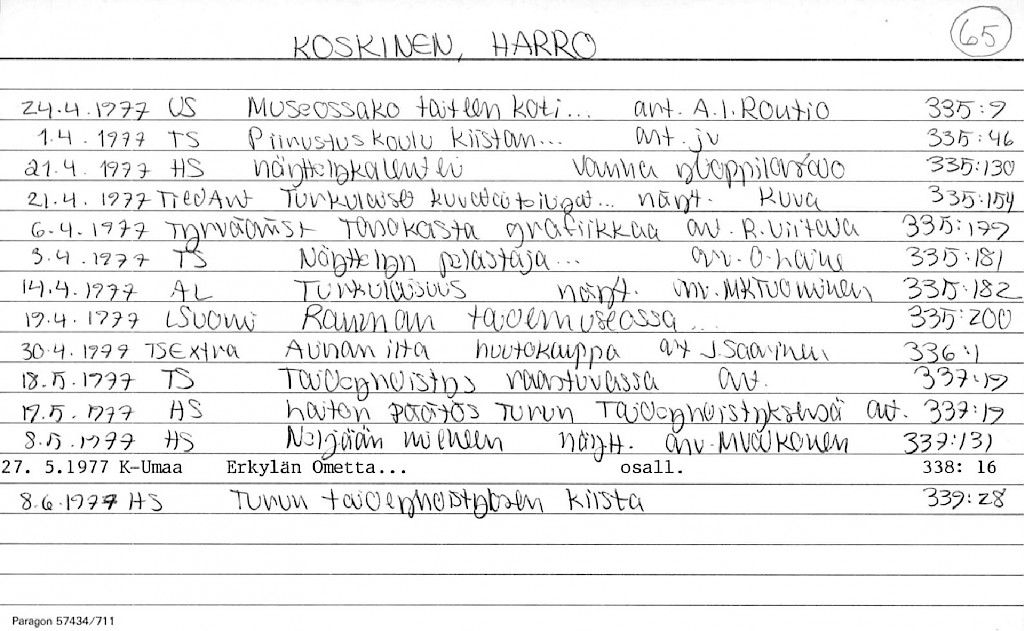 65
KOSKINEN, HARRO
24.4.1977 US Museossako taiteen koti... art. A.I. Routio 335:9
1.4.1977 TS Piirustuskoulu kiistan... art. jv 335:46
21.4.1977 HS näyttelykalenteri Vanha ylioppilastalo 335:130
21.4.1977 TreðAut Turkulaiset kuvataiteilijat... näyt. Kuva 335:154
6.4.1977 Tyrväänst Tanakasta grafiikkaa arv. R. Viitala 335:179
3.4.1977 TS Näyttelyn pelastaja... arv. O. Laine 335:181
14.4.1977 AL Turkulaisuus näyt. arv. MKTuominen 335:182
19.4.1977 LSuomi Rauman taidemuseossa... 335:200
30.4.1977 TSExtra Auran ilta huutokauppa art J. Saarinen 336:1
18.5.1977 TS Taideyhdistys vaastuvassa art. 337:19
19.5.1977 HS haiton päätös Turun Taideyhdistyksessä art. 337:19
8.5.1977 HS Neljään miehen näyt. arv. MValkonen 337:131
27. 5.1977 K-Umaa Erkylän Ometta... osall. 338: 16
8.6.1977 HS Turun taideyhdistyksen kiista 339:28
Paragon 57434/711